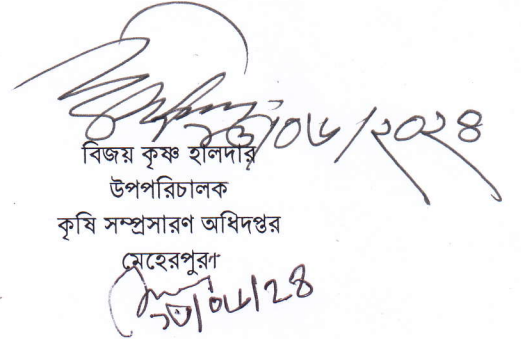 ১৩/০৬/২০২৪
বিজয় কৃষ্ণ হালদার
উপপরিচালক
কৃষি সম্প্রসারণ অধিদপ্তর
মেহেরপুর।
১৩/০৬/২৪